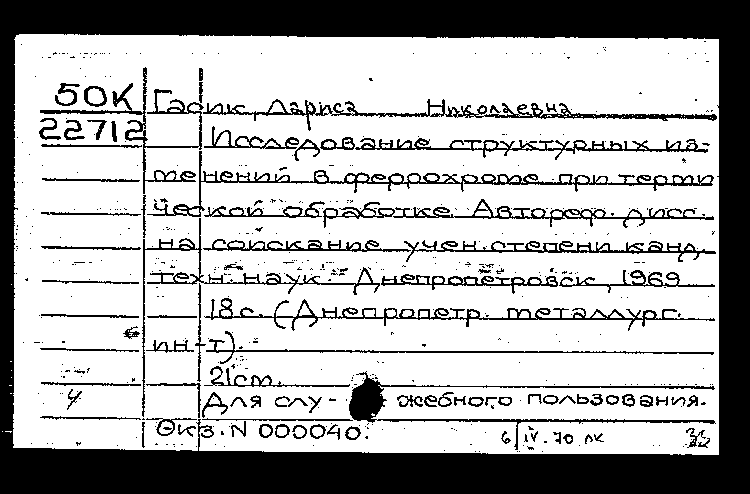 50К Гасик, Лариса Николаевна
22712 Исследование структурных из-
менений в феррохроме при терми
ческой обработке. Автореф. дисс.
на соискание учен. степени канд.
техн. наук. Днепропетровск, 1969
18с. (Днепропетр. металлург.
ин-т).
21см.
Для слу- жебного пользования.
Экз. N 000040.
6/IV.70 лк